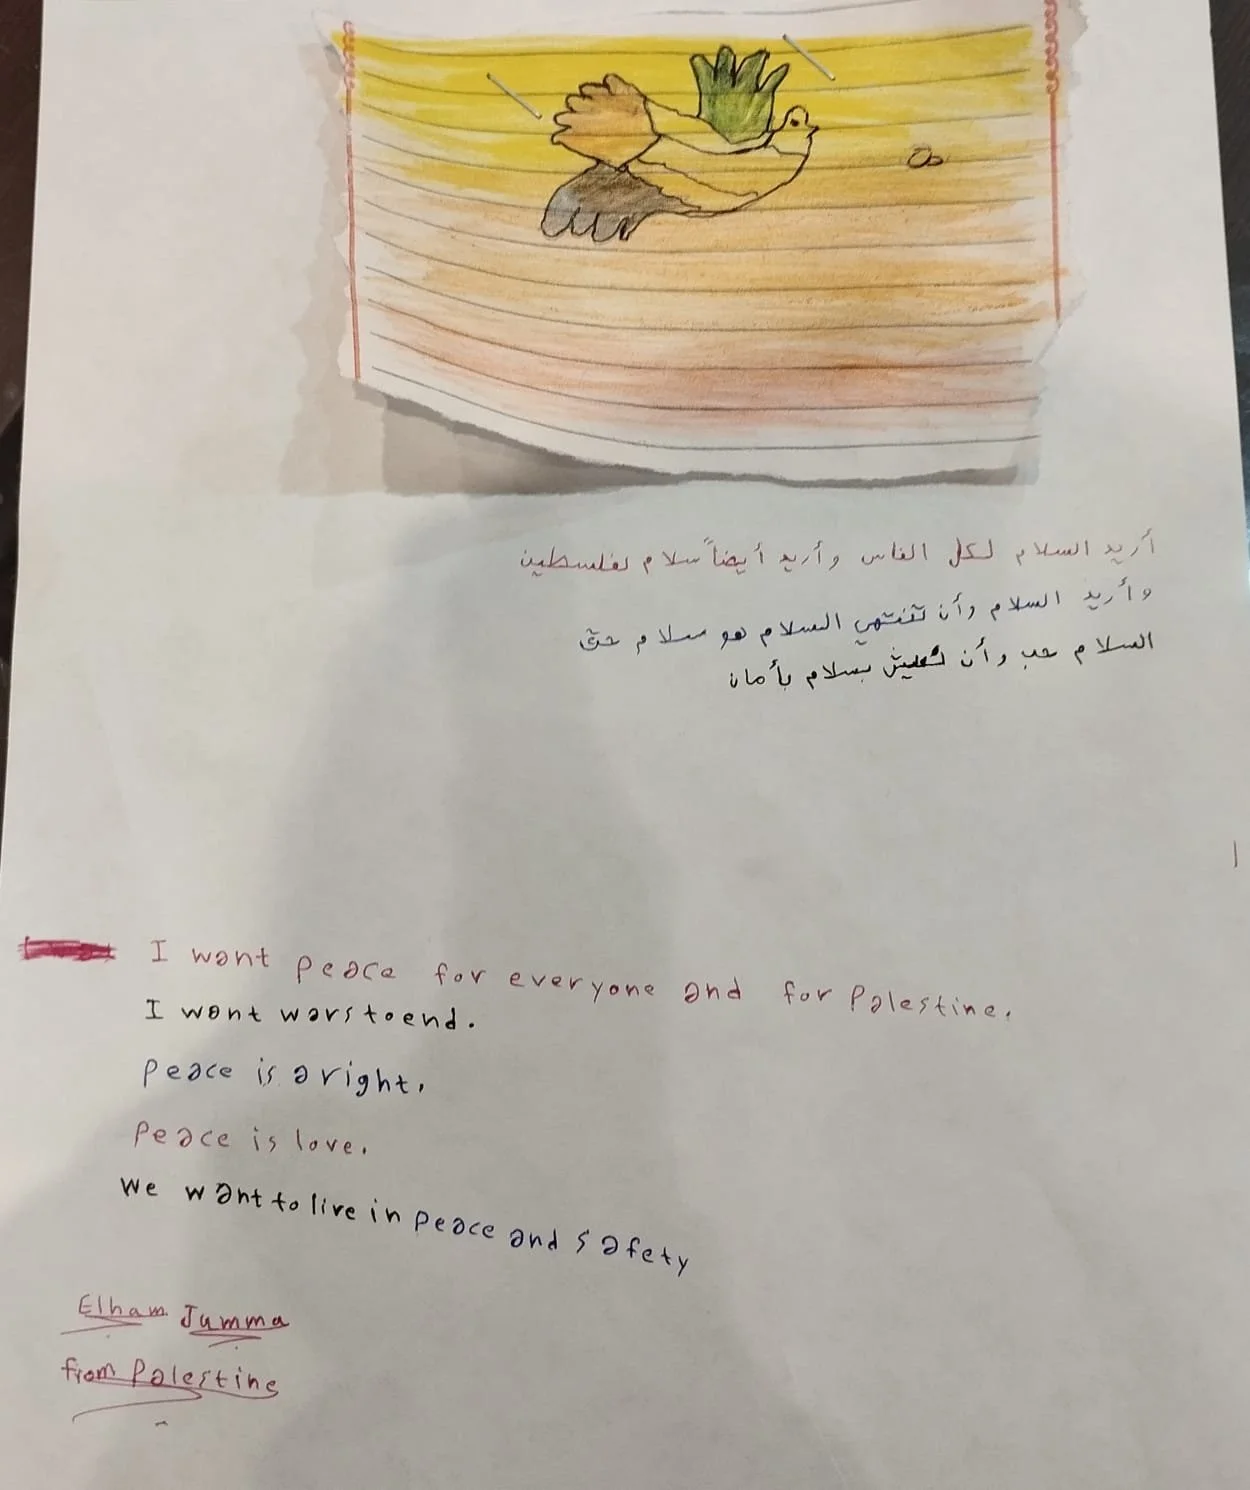 أريد السلام لكل الناس وأريد أيضاً سلام لفلسطين
وأريد السلام وأن تنتهي السلام هو سلام حق
السلام حب وأن نعيش بسلام بأمان
I want peace for everyone and for Palestine.
I want wars to end.
Peace is a right.
Peace is love.
We want to live in peace and safety
Elham Jumma
from Palestine